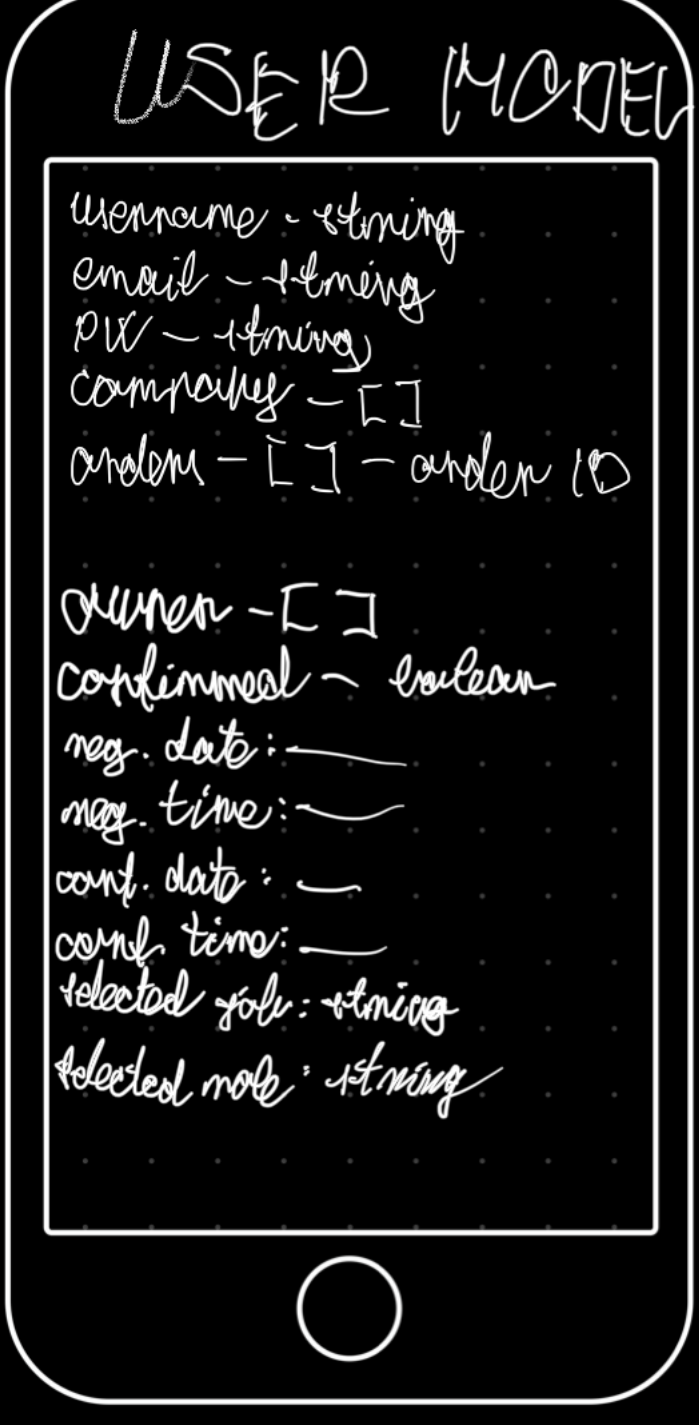 USER MODEL
username - string
email - string
PW - string
company - []
orders - [] - order ID
owner - []
confirmed - boolean
reg. date:
reg. time:
conf. date:
conf. time:
selected : string
selected role : string